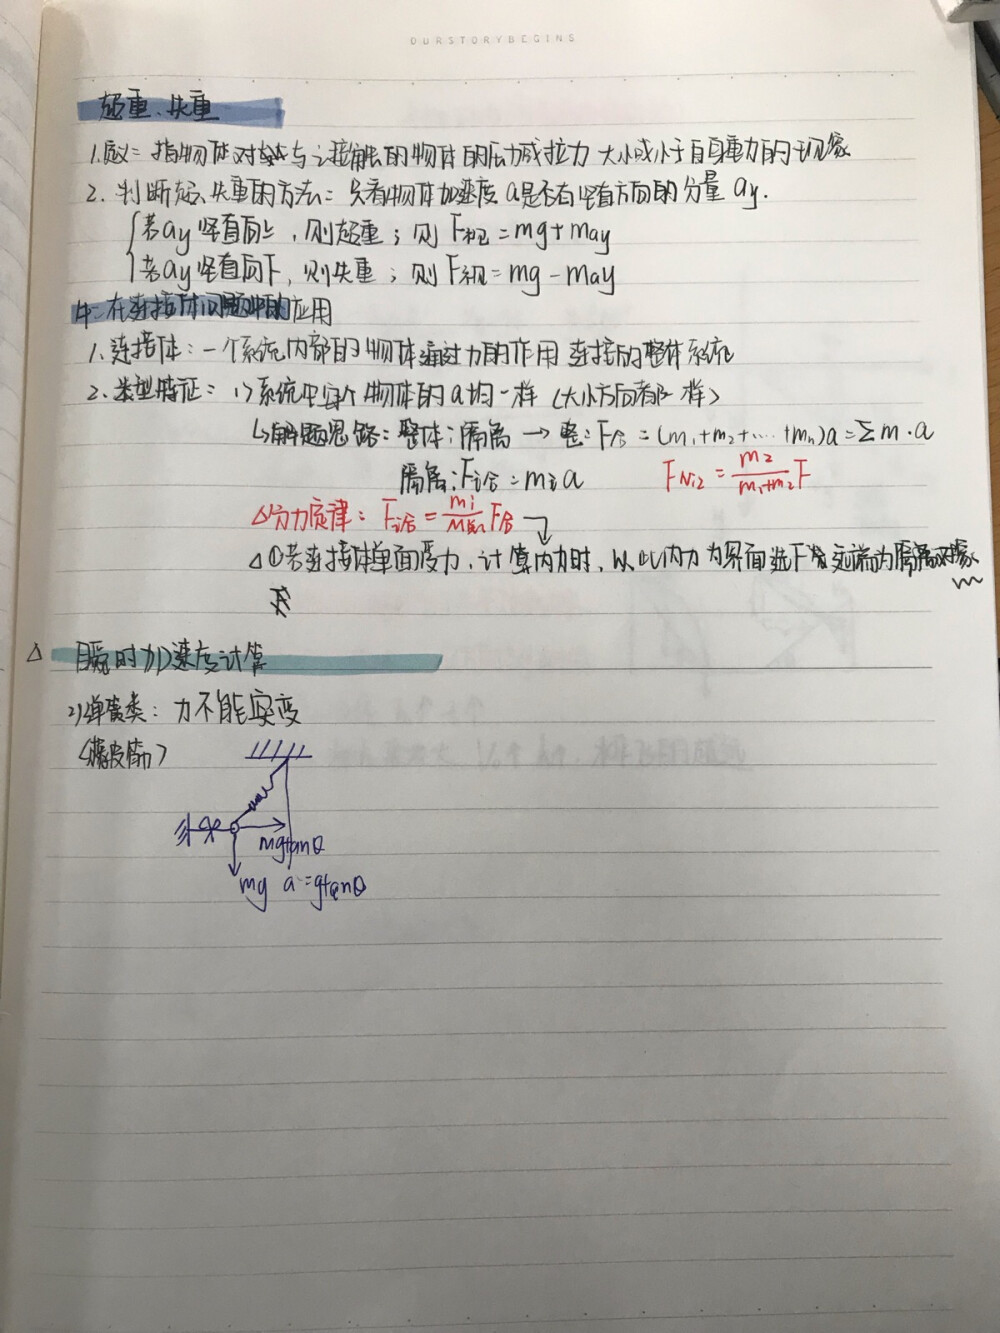 OURSTORYBEGINS
超重、失重
1.定义：指物体对与之接触的物体的压力或拉力 大于或小于自身重力的现象
2. 判断超、失重的方法：只看物体加速度a是否有竖直方向的分量 ay.
若ay竖直向上，则超重；则 F视=mg+may
若ay竖直向下，则失重；则 F视=mg-may
牛二在连接体问题中的应用
1.连接体：一个系统内部的物体通过力的作用 连接的整体系统
2.类型特征：1)系统中每个物体的a均一样（大小方向都一样）
↳解题思路：整体；隔离 → 整：F合=(m₁+m₂+….+mn)a=Σm·a
隔离：Fi合=mia
FN12=m2/m1+m2 F
△分力定律：Fi合=mi/M总 F合
△①若连接体单面受力，计算内力时，以内力为界面选下 远端为隔离对象
△ 瞬时加速度计算
2)弹簧类：力不能突变
（橡皮筋）
mgtanθ
mg a=gtanθ